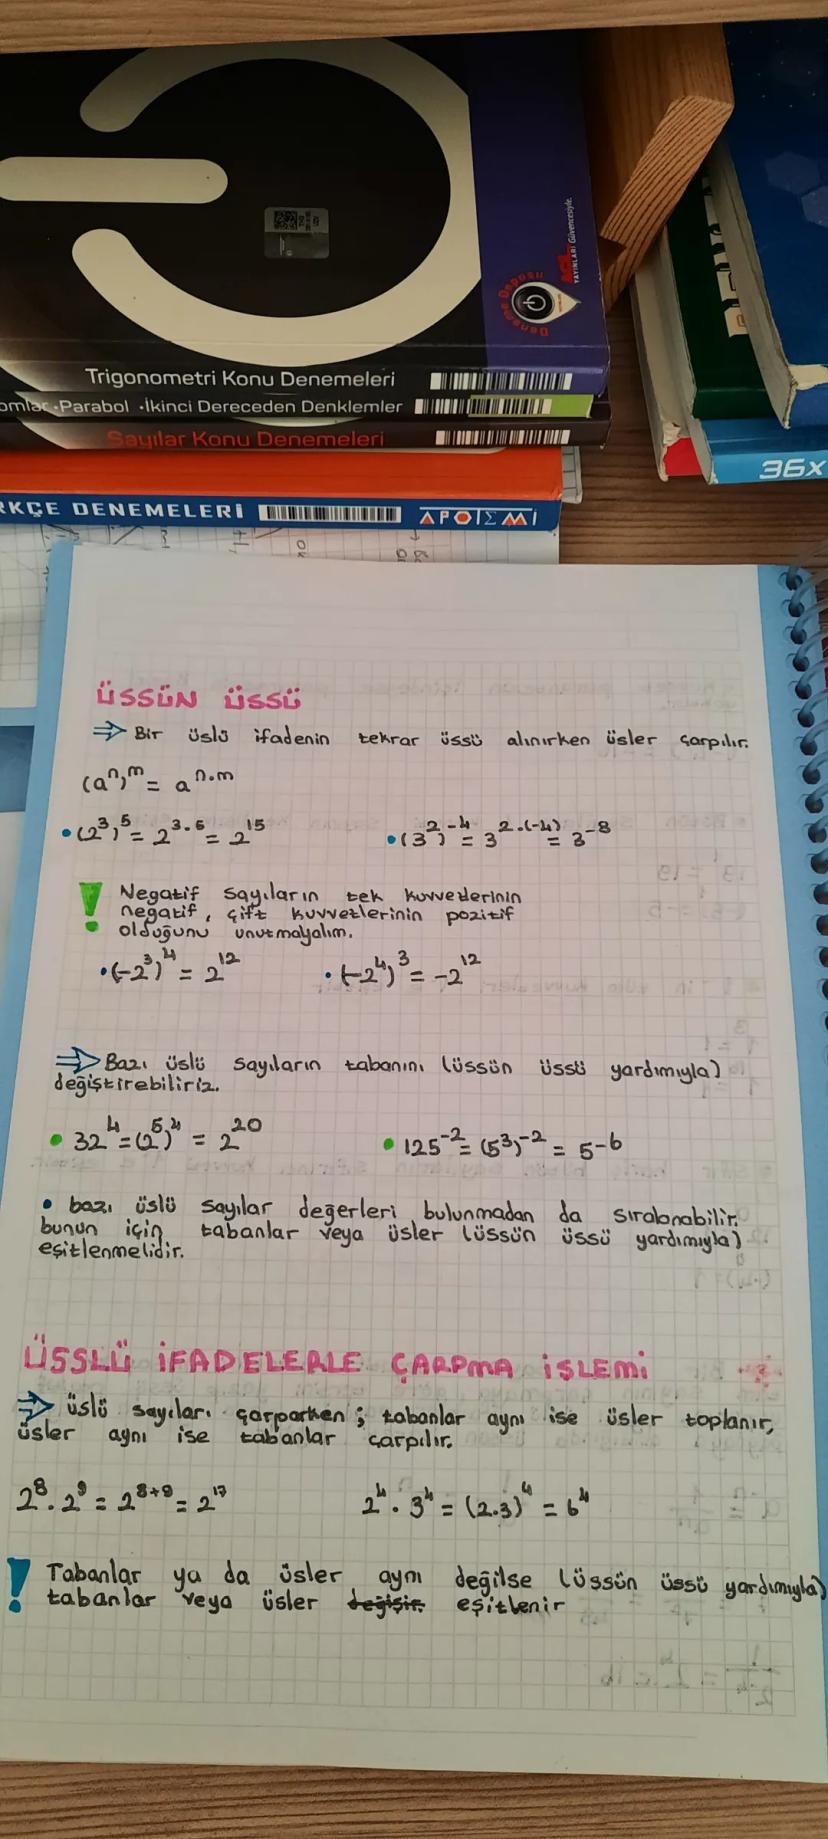 AÇIL
YAYINLARI Güvencesiyle.
Deneme Deposu
Trigonometri Konu Denemeleri
omlar • Parabol • İkinci Dereceden Denklemler
Sayılar Konu Denemeleri
36x
RKÇE DENEMELERİ
APOTEMİ
ÜSSÜN ÜSSÜ
⇒ Bir üslü ifadenin tekrar üssü alınırken üsler çarpılır.
(aⁿ)ᵐ = aⁿ·ᵐ
• (2³)⁵ = 2³·⁵ = 2¹⁵ • (3²)⁻⁴ = 3²·⁽⁻⁴⁾ = 3⁻⁸
! Negatif sayıların tek kuvvetlerinin
negatif, çift kuvvetlerinin pozitif
olduğunu unutmayalım.
• (-2³)⁴ = 2¹² • (-2⁴)³ = -2¹²
⇒ Bazı üslü sayıların tabanını (üssün üssü yardımıyla)
değiştirebiliriz.
• 32⁴ = (2⁵)⁴ = 2²⁰ • 125⁻² = (5³)⁻² = 5⁻⁶
• bazı üslü sayılar değerleri bulunmadan da sıralanabilir.
bunun için tabanlar veya üsler (üssün üssü yardımıyla)
eşitlenmelidir.
ÜSSLÜ İFADELERLE ÇARPMA İSLEMİ
⇒ üslü sayıları çarparken ; tabanlar aynı ise üsler toplanır,
üsler aynı ise tabanlar çarpılır.
2⁸ . 2⁹ = 2⁸⁺⁹ = 2¹⁷ 2⁴ . 3⁴ = (2.3)⁴ = 6⁴
! Tabanlar ya da üsler aynı değilse (üssün üssü yardımıyla)
tabanlar veya üsler değişir. eşitlenir